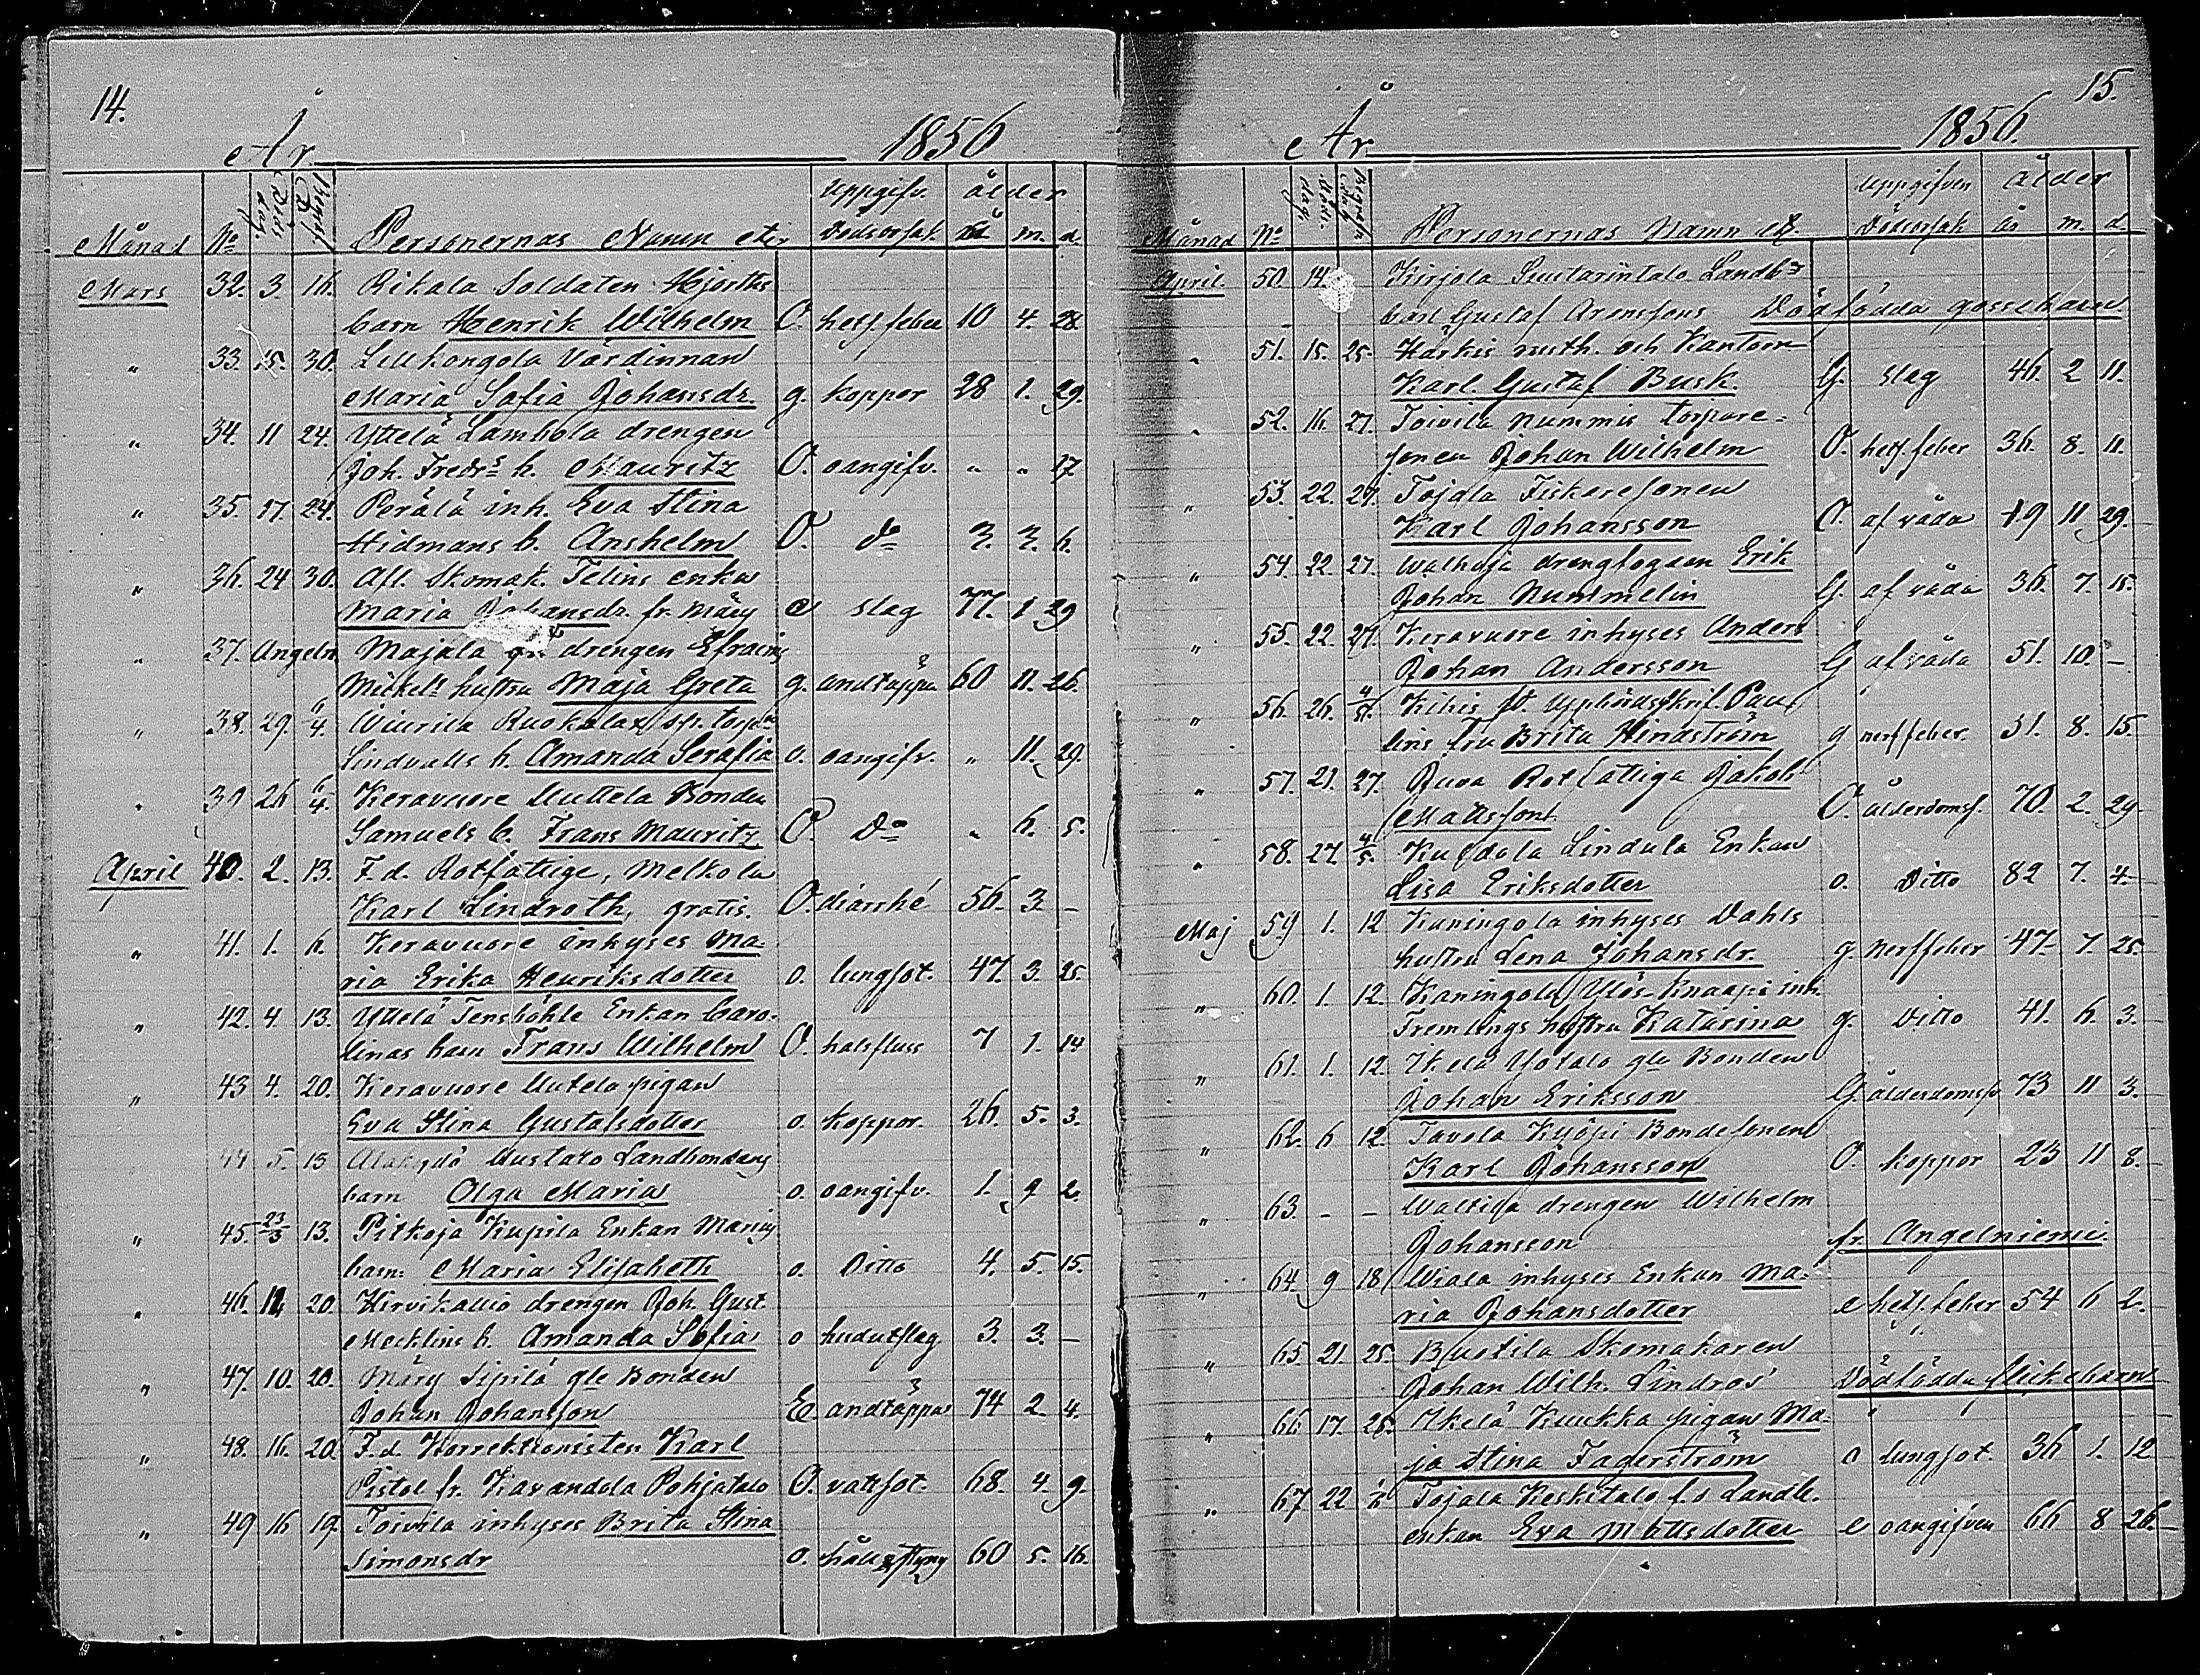 14.
År 1856
Månad No Döds dag Begrafn. D. Personernas Namn etc. Uppgifv. Dödsorsak ålder år m. d.
Mars 32. 3. 16. Rikala Soldaten Hjorttes
barn Henrik Wilhelm O. hetf. feber 10 4. 28.
" 33. 15. 30. Lillkongola Värdinnan
Maria Sofia Johansdr. g. koppor 28 1. 29.
" 34. 11 24. Yttelä Lamhola drengen
Joh. Fredrs b. Mauritz O. oangifv. " " 17
" 35. 17. 24. Perälä inh. Eva Stina
Hidmans b. Anshelm O. Do 3. 3. 6.
" 36. 24 30. Afl. Skomak. Telins enka
Maria Johansdr. fr. Märy e slag 77. 1 29
" 37. Angeln. Majala drengen Efraim
Mickels hustru Maja Greta g. andtäppa 60 11. 26.
" 38. 29. 6/4. Wiurila Ruokolax sp. torp.
Lindvalls b. Amanda Serafia o. oangifv. " 11. 29.
" 39 26 6/4. Keravuore Uuttela Bonden
Samuels b. Frans Mauritz O. Do " 6. 5.
April 40. 2. 13. F.d. Rotfattige, Melkola
Karl Lindroth, gratis. O. diarrhé 56. 3. –
" 41. 1. 6. Keravuore inhyses Ma-
ria Erika Henriksdotter o. lungsot. 47. 3. 25.
" 42. 4. 13. Yttelä Tensböhle Enkan Caro-
linas barn Frans Wilhelm O. halsfluss 7 1. 14
" 43 4. 20. Keravuore Uutela pigan
Eva Stina Gustafsdotter o. koppor. 26. 5. 3.
44 5. 13 Alakydö Uustalo Landbondens
barn Olga Maria o. oangifv. 1. 9 2.
" 45. 23/3 13. Pitkoja Kupila Enkan Marias
barn: Maria Elisabeth o. Ditto 4. 5. 15.
" 46. 12. 20. Hirvikallio drengen Joh. Gust.
Mecklins b. Amanda Sofia o hudutslag 3. 3. –
" 47. 10. 20. Märy Sipilä gle Bonden
Johan Johansson E. andtäppa 74 2. 4.
" 48. 16. 20. F.d. Korrektionisten Karl
Pistol fr. Kavandola Pohjatalo O. vattsot. 68. 4 9.
" 49 16 19. Toivila inhyses Brita Stina
Simonsdr o. håll & styng 60 5. 16.
15.
År 1856.
Månad No Döds dag. Begrafn. Personernas Namn etc. Uppgifven Dödsorsak ålder år m. d.
April. 50. 14. Kirjola Suutarintalo Landb.
Gustaf Arensons Dödfödda gossebarn
" 51. 15. 25. Harkis rusth. och Kantorn
Karl Gustaf Busk. G. slag 46. 2 11.
" 52. 16. 27. Toivila Nummis torpare-
sonen Johan Wilhelm O. hetf. feber 36. 8. 11.
" 53. 22. 27. Tojala Fiskaresonen
Karl Johansson O. af våda 19 11 29.
" 54. 22. 27. Walhoja drengfogden Erik
Johan Nummelin G. af våda 36. 7. 15.
" 55. 22. 27. Keravuore inhyses Anders
Johan Andersson G af våda 51. 10. –
" 56. 26. 4/5. Kihis Uppbördsskrif. Pau-
lins fru Brita Hindström g nerffeber 51. 8. 15.
" 57. 21. 27. Juva Rotfattiga Jakob
Mattsson O. ålderdomsf. 70. 2. 29.
" 58. 27. 4/5. Kusdola Lindula Enkan
Lisa Eriksdotter o. Ditto 82 7. 4.
Maj 59. 1. 12 Kaningola inhyses Dahls
hustru Lena Johansdr. g. nerffeber 47. 7. 25.
" 60. 1. 12. Kaningola Ylös-Knaapi inh.
Fremlings hustru Katarina g. Ditto 41. 6. 3.
" 61. 1. 12 Ikelä Yötalo gle Bonden
Johan Eriksson G. ålderdomsf. 73 11 3.
" 62. 6 12. Tavola Kyöpi Bondesonen
Karl Johansson O. koppor 23 11 8.
" 63. – – Waltila drengen Wilhelm
Johansson fr. Angelniemi.
" 64. 9 18. Wiala inhyses Enkan Ma-
ria Johansdotter e hetf. feber 54 6 2.
" 65. 21. 25. Ruotila Skomakaren
Johan Wilh. Lindros' Dödfödda flickebarn
" 66. 17. 25. Ikelä Kuukka pigan Ma-
ja Stina Fagerström o lungsot. 36 1. 12
" 67 22 Tojala Keskitalo f.d Landb.
enkan Eva Mattsdotter e oangifven 66 8 26.